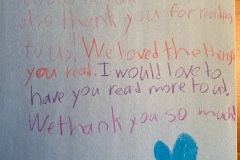 also thank you for reading
to us! We loved the things
you read. I would love to
have you read more to us.
We thank you so much!